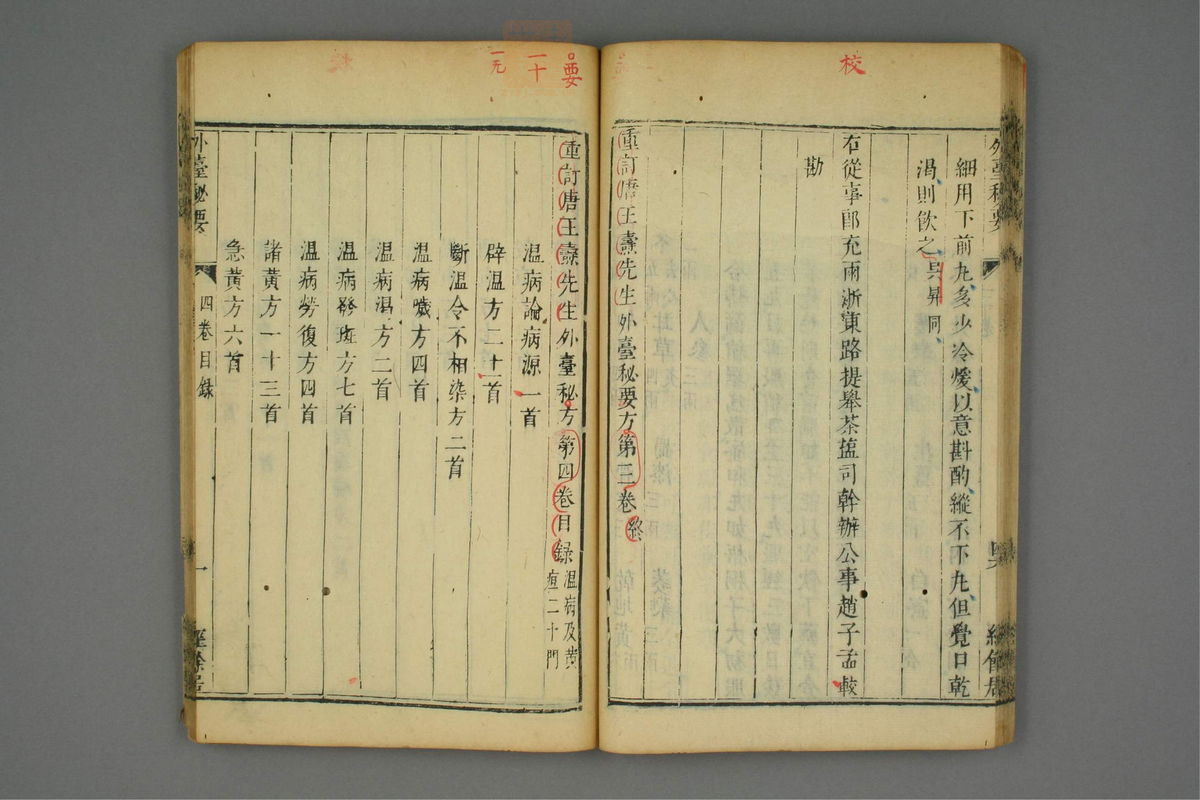 校
細用下前丸多少冷煖以意斟酌縱不下丸但覺口乾
渴則飲之吴昇同
右從事郎充兩浙東路提舉茶鹽司幹辦公事趙子孟較
勘
重訂唐王燾先生外臺秘要方第三卷終
要
一十
一无
重訂唐王燾先生外臺秘方第四卷目錄温病及黄疸二十門
温病論病源一首
辟温方二十一首
斷温令不相染方二首
温病噦方四首
温病渴方二首
温病發斑方七首
温病勞復方四首
諸黄方一十三首
急黄方六首
外臺秘要
四卷目録
一
經餘居